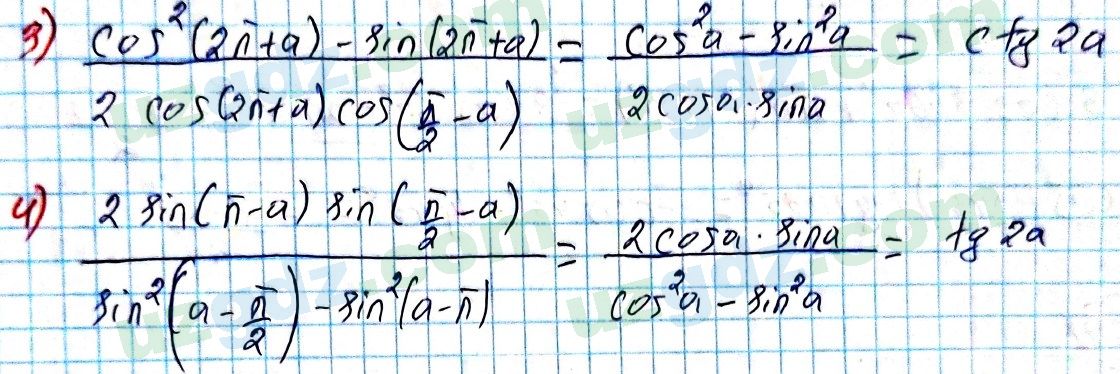 3) cos²(2π+a) - sin(2π+a) / 2 cos(2π+a) cos(π/2 - a) = cos²a - sin²a / 2 cosa · sina = ctg 2a
4) 2 sin(π-a) sin(π/2 - a) / sin²(a - π/2) - sin²(a-π) = 2 cosa · sina / cos²a - sin²a = tg 2a
uzgdz.com
uzgdz.com
uzgdz.com
uzgdz.com